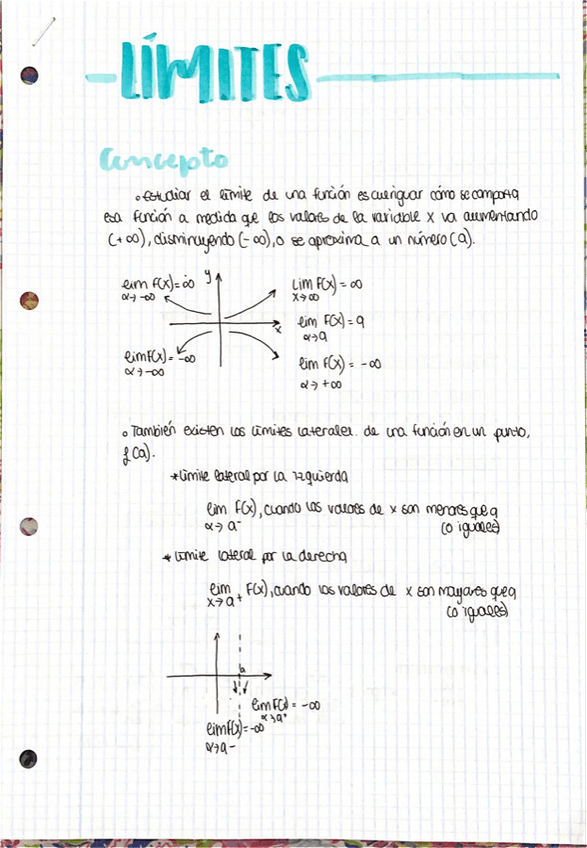 LÍMITES
Concepto
• Estudiar el límite de una función es averiguar cómo se comporta
esa función a medida que los valores de la variable x va aumentando
(+∞), disminuyendo (-∞), o se aproxima a un número (a).
lim f(x) = ∞
x→-∞
y
lim f(x) = ∞
x→∞
x
lim f(x) = a
x→a
lim f(x) = -∞
x→-∞
lim f(x) = -∞
x→+∞
• También existen los límites laterales. de una función en un punto,
f(a).
*Límite lateral por la izquierda
lim f(x), cuando los valores de x son menores que a
x→a⁻ (o iguales)
* Límite lateral por la derecha
lim f(x), cuando los valores de x son mayores que a
x→a⁺ (o iguales)
a
lim f(x) = -∞
x→a⁺
lim f(x) = -∞
x→a⁻